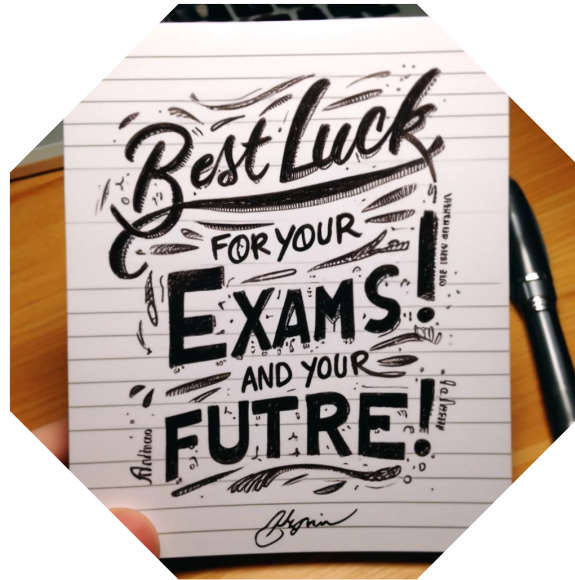 Best Luck
FOR YOUR
EXAMS!
AND YOUR
FUTRE!